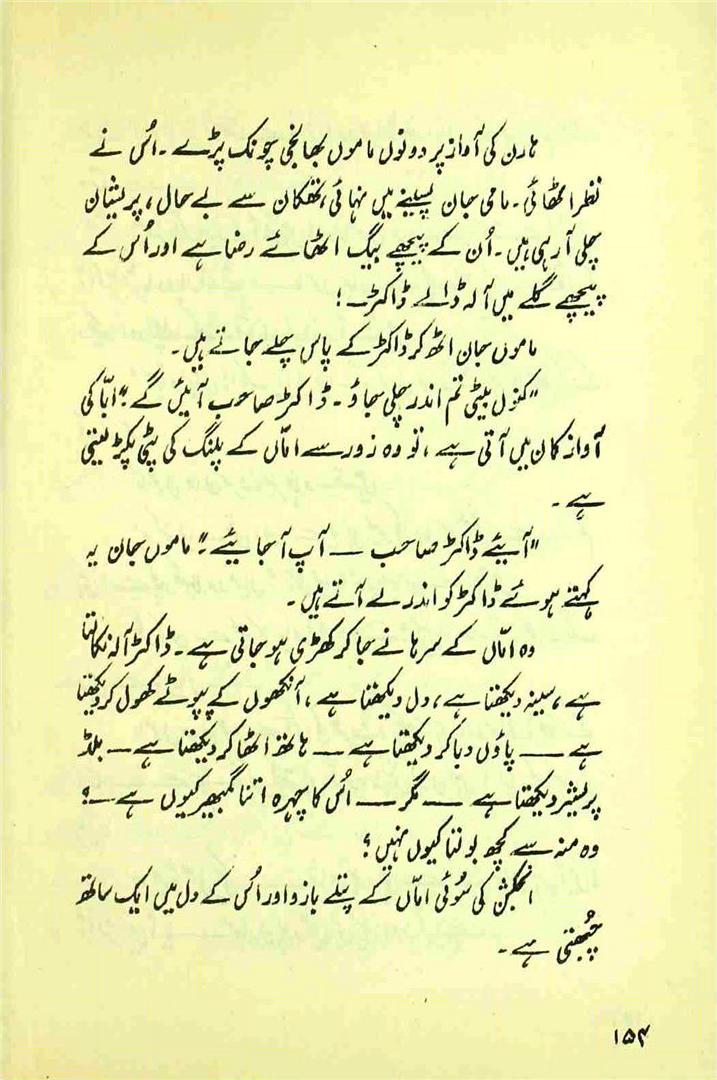 ہارن کی آواز پر دونوں ماموں بھانجی چونک پڑے ۔ اُس نے
نظر اٹھائی ۔ مامی جان پسینے میں نہائی، تھکان سے بے حال، پریشان
چلی آ رہی ہیں ۔ اُن کے پیچھے بیگ اٹھائے رضا ہے اور اُس کے
پیچھے گلے میں آلہ ڈالے ڈاکٹر __ !
ماموں جان اٹھ کر ڈاکٹر کے پاس چلے جاتے ہیں ۔
"کنول بیٹی تم اندر چلی جاؤ ۔ ڈاکٹر صاحب آئیں گے ۔" ابّا کی
آواز کان میں آتی ہے ، تو وہ زور سے امّاں کے پلنگ کی پٹی پکڑ لیتی
ہے ۔
"آیئے ڈاکٹر صاحب — آپ آ جایئے ۔" ماموں جان یہ
کہتے ہوئے ڈاکٹر کو اندر لے آتے ہیں ۔
وہ امّاں کے سرہانے جا کر کھڑی ہو جاتی ہے ۔ ڈاکٹر آلہ نکالتا
ہے ، سینہ دیکھتا ہے ، دل دیکھتا ہے ، آنکھوں کے پپوٹے کھول کر دیکھتا
ہے — پاؤں دبا کر دیکھتا ہے — ہاتھ اٹھا کر دیکھتا ہے — بلڈ
پریشر دیکھتا ہے — مگر — اُس کا چہرہ اتنا گمبھیر کیوں ہے — ؟
وہ منہ سے کچھ بولتا کیوں نہیں ؟
انجکشن کی سُوئی امّاں کے پتلے بازو اور اُس کے دل میں ایک ساتھ
چُبھتی ہے ۔
۱۵۴